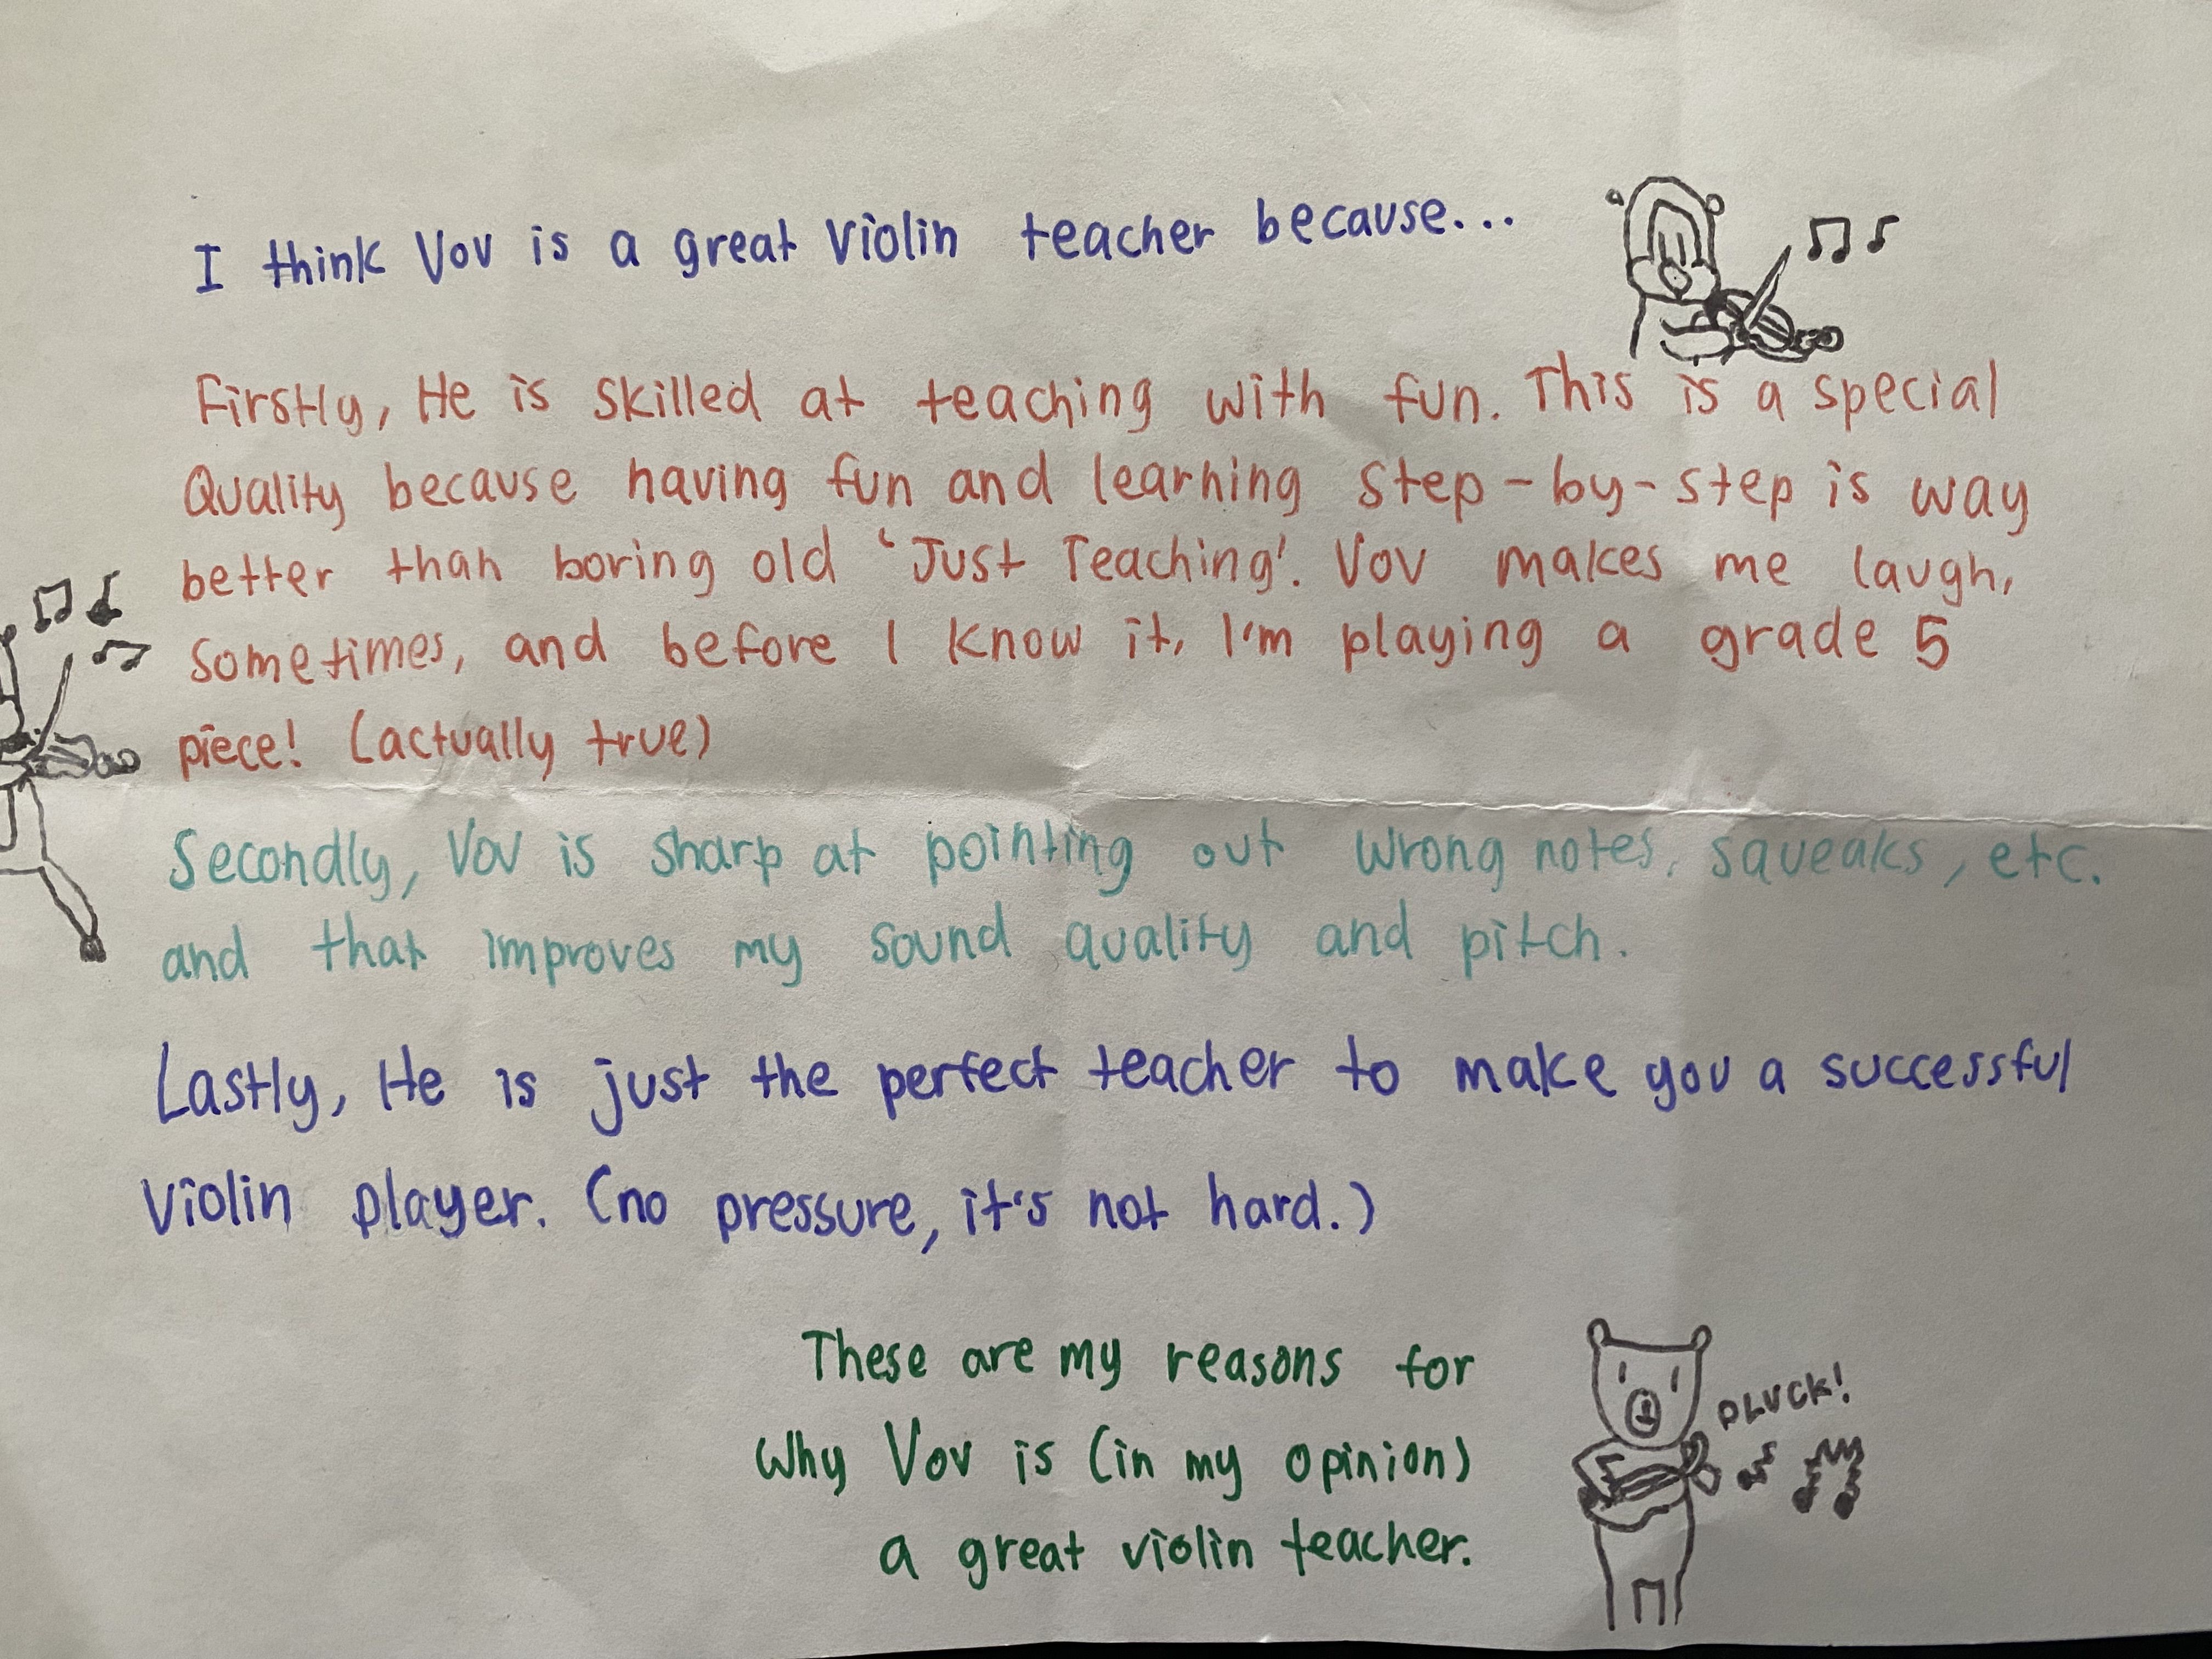 I think Vov is a great violin teacher because...
Firstly, He is skilled at teaching with fun. This is a special
Quality because having fun and learning step-by-step is way
better than boring old 'Just Teaching'. Vov makes me laugh,
sometimes, and before I know it, I'm playing a grade 5
piece! (actually true)
Secondly, Vov is sharp at pointing out wrong notes, squeaks, etc.
and that improves my sound quality and pitch.
Lastly, He is just the perfect teacher to make you a successful
violin player. (no pressure, it's not hard.)
These are my reasons for
why Vov is (in my opinion)
a great violin teacher.
PLUCK!